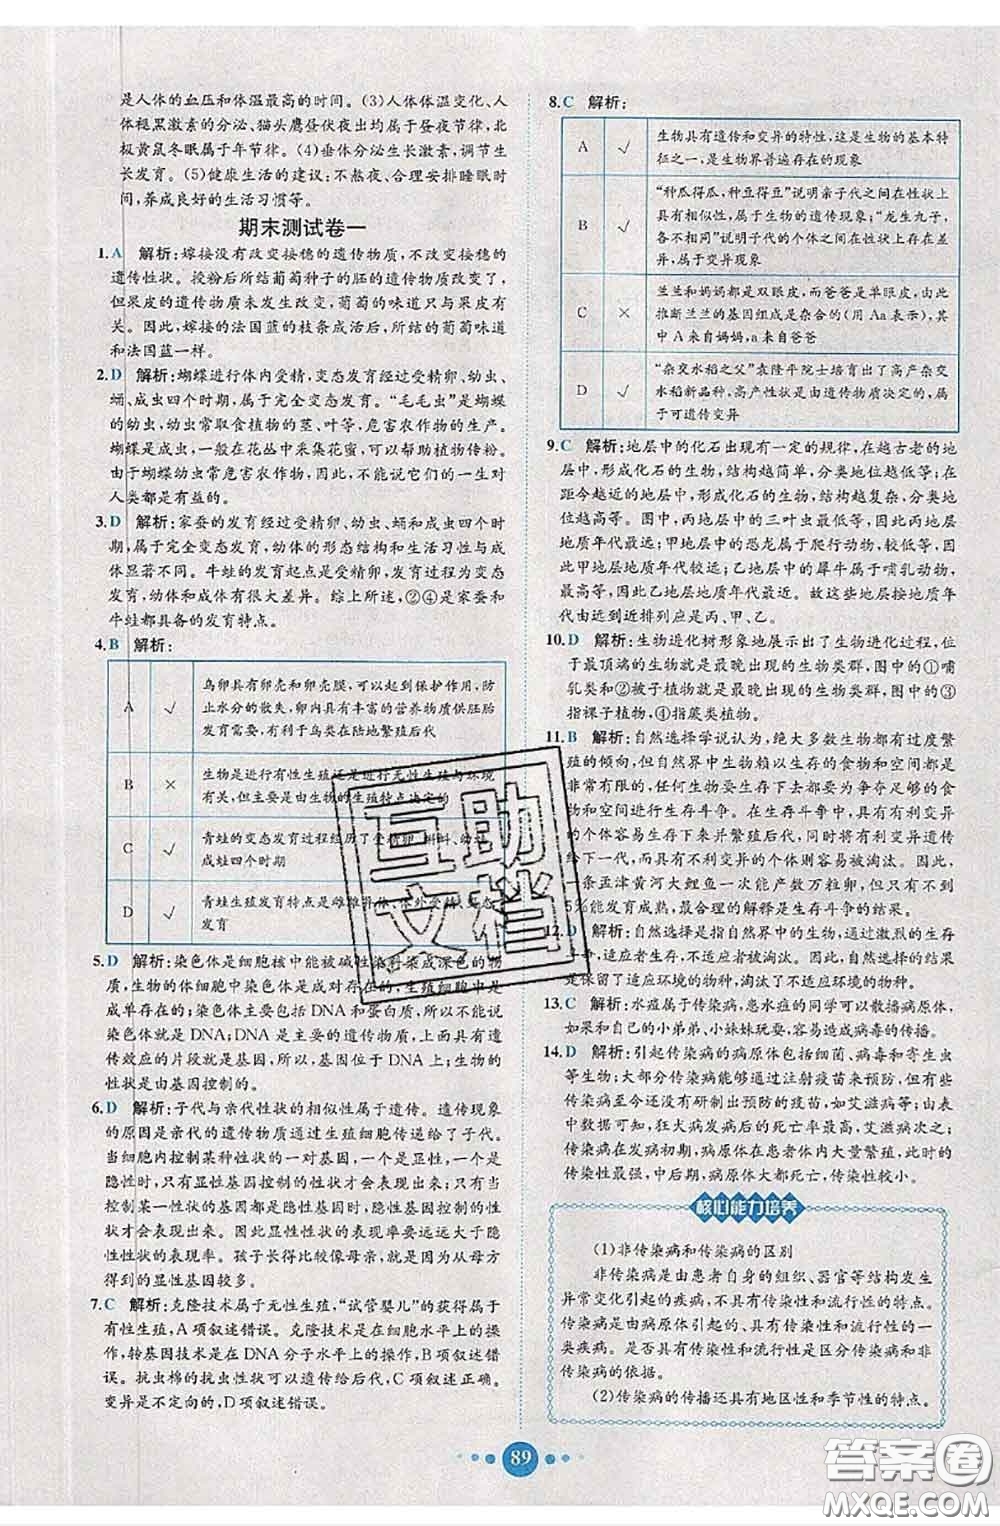 是人体的血压和体温最高的时间。(3)人体体温变化、人
体褪黑激素的分泌、猫头鹰昼伏夜出均属于昼夜节律,北
极黄鼠冬眠属于年节律。(4)垂体分泌生长激素,调节生
长发育。(5)健康生活的建议:不熬夜、合理安排睡眠时
间,养成良好的生活习惯等。
期末测试卷一
1.A 解析:嫁接没有改变接穗的遗传物质,不改变接穗的
遗传性状。授粉后所结葡萄种子的胚的遗传物质改变了,
但果皮的遗传物质未发生改变,葡萄的味道只与果皮有
关。因此,嫁接的法国蓝的枝条成活后,所结的葡萄味道
和法国蓝一样。
2.D 解析:蝴蝶进行体内受精,变态发育经过受精卵、幼虫、
蛹、成虫四个时期,属于完全变态发育。“毛毛虫”是蝴蝶
的幼虫,幼虫常取食植物的茎、叶等,危害农作物的生产。
蝴蝶是成虫,一般在花丛中采集花蜜,可以帮助植物传粉。
由于蝴蝶幼虫常危害农作物,因此,不能说它们的一生对
人类都是有益的。
3.D 解析:家蚕的发育经过受精卵、幼虫、蛹和成虫四个时
期,属于完全变态发育,幼体的形态结构和生活习性与成
体显著不同。牛蛙的发育起点是受精卵,发育过程为变态
发育,幼体和成体有很大差异。综上所述,②④是家蚕和
牛蛙都具备的发育特点。
4.B 解析:
A √ 鸟卵具有卵壳和卵壳膜,可以起到保护作用,防
止水分的散失,卵内具有丰富的营养物质供胚胎
发育需要,有利于鸟类在陆地繁殖后代
B × 生物是进行有性生殖还是进行无性生殖与环境
有关,但主要是由生物的生殖特点决定的
C √ 青蛙的变态发育过程经历了受精卵、蝌蚪、幼蛙、
成蛙四个时期
D √ 青蛙生殖发育特点是雌雄异体、体外受精、变态
发育
5.D 解析:染色体是细胞核中能被碱性染料染成深色的物
质,生物的体细胞中染色体是成对存在的,生殖细胞中是
成单存在的;染色体主要包括DNA和蛋白质,所以不能说
染色体就是DNA;DNA是主要的遗传物质,DNA上具有
遗传效应的片段就是基因,所以,基因位于DNA上;生物的
性状是由基因控制的。
6.D 解析:子代与亲代性状的相似性属于遗传。遗传现象
的原因是亲代的遗传物质通过生殖细胞传递给了子代。
当细胞内控制某种性状的一对基因,一个是显性,一个是
隐性时,只有显性基因控制的性状才会表现出来。隐性基
因控制的性状只有在控制该性状的基因都是隐性基因时
才会表现出来。因此显性性状的表现率要远远大于隐性
性状的表现率。孩子长得比较像母亲,是因为从母方
得到的显性基因较多。
7.C 解析:克隆技术属于无性生殖,“试管婴儿”的获得属于
有性生殖,A项叙述错误。克隆技术是在细胞水平上的操
作,转基因技术是在DNA分子水平上的操作,B项叙述错
误。抗虫棉的抗虫性状可以遗传给后代,C项叙述正确。
变异是不定向的,D项叙述错误。
8.C 解析:
A √ 生物具有遗传和变异的特性,这是生物的基本特
征之一,是生物界普遍存在的现象
B √ “种瓜得瓜,种豆得豆”说明亲子代之间在性状上
具有相似性,属于生物的遗传现象;“龙生九子,
各不相同”说明子代的个体之间在性状上存在差
异,属于变异现象
C × 兰兰和妈妈都是双眼皮,而爸爸是单眼皮,由此
推断兰兰的基因组成是杂合的(用Aa表示),其
中A来自妈妈,a来自爸爸
D √ “杂交水稻之父”袁隆平院士培育出了高产杂交
水稻新品种,高产性状是由遗传物质决定的,属
于可遗传变异
9.C 解析:地层中的化石出现有一定的规律,在越古老的地
层中,形成化石的生物,结构越简单,分类地位越低等;在
距今越近的地层中,形成化石的生物,结构越复杂,分类地
位越高等。图中,丙地层中的三叶虫最低等,所以丙地层
地质年代最久远;甲地层中的恐龙属于爬行动物,较低等,
所以甲地层地质年代较久远;乙地层中的犀牛属于哺乳动物,
最高等,所以乙地层地质年代最近。故这些地层按地质年
代由远到近排列应是丙、甲、乙。
10.D 解析:生物进化树形象地展示出了生物进化过程,位
于最顶端的生物就是最晚出现的生物类群,图中的①哺
乳类和②被子植物就是最晚出现的生物类群,图中的③
指裸子植物,④指蕨类植物。
11.B 解析:自然选择学说认为,绝大多数生物都有过度繁
殖的倾向,而自然界中生物赖以生存的食物和空间又是
非常有限的,任何生物要生存下去都要为获得足够的食
物和空间而进行生存斗争。在生存斗争中,具有有利变异
的个体容易生存下来并繁殖后代,同时将有利变异遗传
给下一代,而具有不利变异的个体则容易被淘汰。因此,
一条孟津黄河大鲤鱼一次能产数万粒卵,但只有不足
5%能发育成熟,最合理的解释是生存斗争的结果。
12.D 解析:自然选择是指自然界中的生物,通过激烈的生存
斗争,适应者生存,不适应者被淘汰的现象。自然选择保
留了适应环境的物种,淘汰了不适应环境的物种。
13.C 解析:水痘属于传染病,患水痘的同学可以散播病原体,
如果和自己的小弟弟、小妹妹玩耍,容易造成病毒的传播。
14.D 解析:引起传染病的病原体包括细菌、病毒和寄生虫
等生物;大部分传染病能够通过注射疫苗来预防,但有些
传染病还没有研制出预防的疫苗,如艾滋病等;由表
中数据可知,狂犬病发病后的死亡率最高,艾滋病次之;
传染病在发病初期,病原体在患者体内大量繁殖,此时的
传染性最强,中后期,病原体大都死亡,传染性较小。
核心能力培养
(1)非传染病和传染病的区别
非传染病是由患者自身的组织、器官等结构发生
异常变化引起的疾病,不具有传染性和流行性的特点。
传染病是由病原体引起的、具有传染性和流行性的一
类疾病。是否具有传染性和流行性是区分传染病和非
传染病的依据。
(2)传染病的传播还具有地区性和季节性的特点。
互助
文档
89
答案卷
MXQE.COM